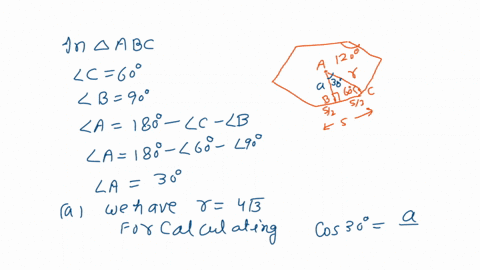 In △ ABC
∠C = 60°
∠B = 90°
∠A = 180° - ∠C - ∠B
∠A = 180° - ∠60° - ∠90°
∠A = 30°
(a) we have r = 4√3
For Calculating cos 30° = a
120°
A
r
a 30°
60° C
B
S/2 S/2
S